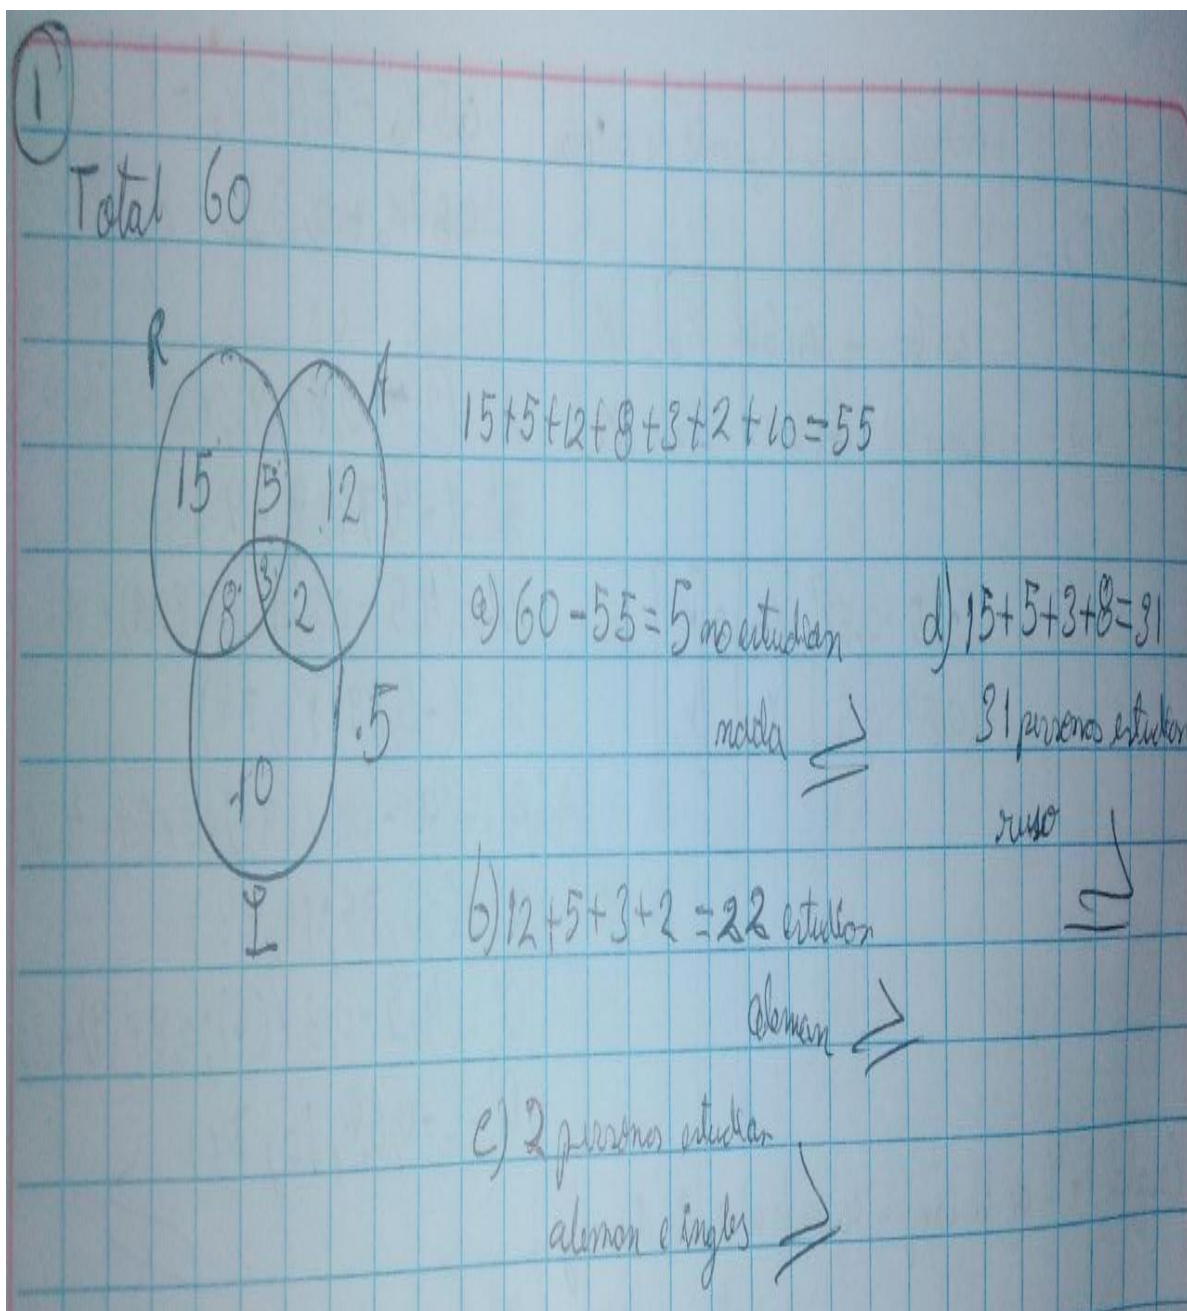 1
Total 60
R
A
15 5 12
8 3 2
.5
10
I
15+5+12+8+3+2+10=55
a) 60-55=5 no estudian
nada
b) 12+5+3+2=22 estudian
aleman
c) 2 personas estudian
aleman e ingles
d) 15+5+3+8=31
31 personas estudian
ruso